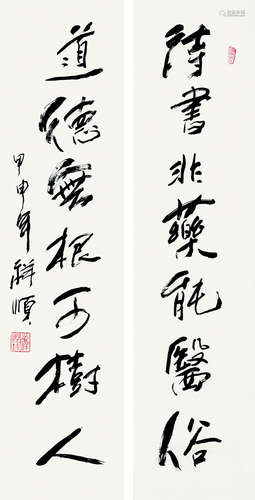 詩書非藥能醫俗
道德無根可樹人
甲申年祥順